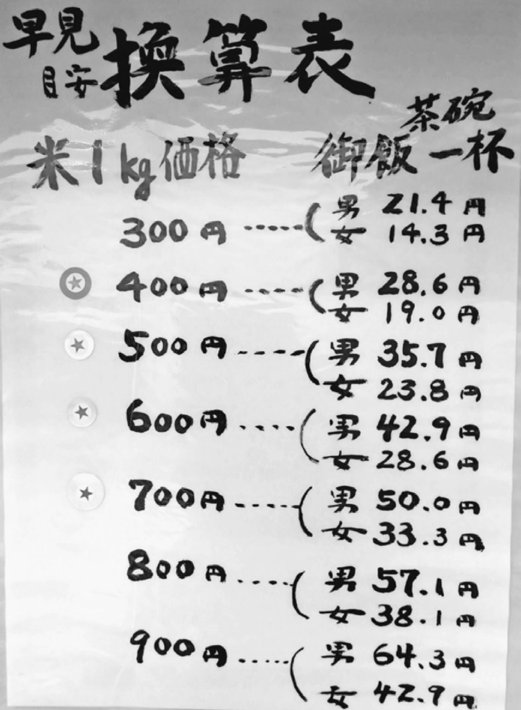 早見
目安
換算表
米1kg価格
御飯
茶碗
一杯
300円 ……( 男 21.4円
女 14.3円
400円 ……( 男 28.6円
女 19.0円
500円 ……( 男 35.7円
女 23.8円
600円 ……( 男 42.9円
女 28.6円
700円 ……( 男 50.0円
女 33.3円
800円 ……( 男 57.1円
女 38.1円
900円 ……( 男 64.3円
女 42.9円